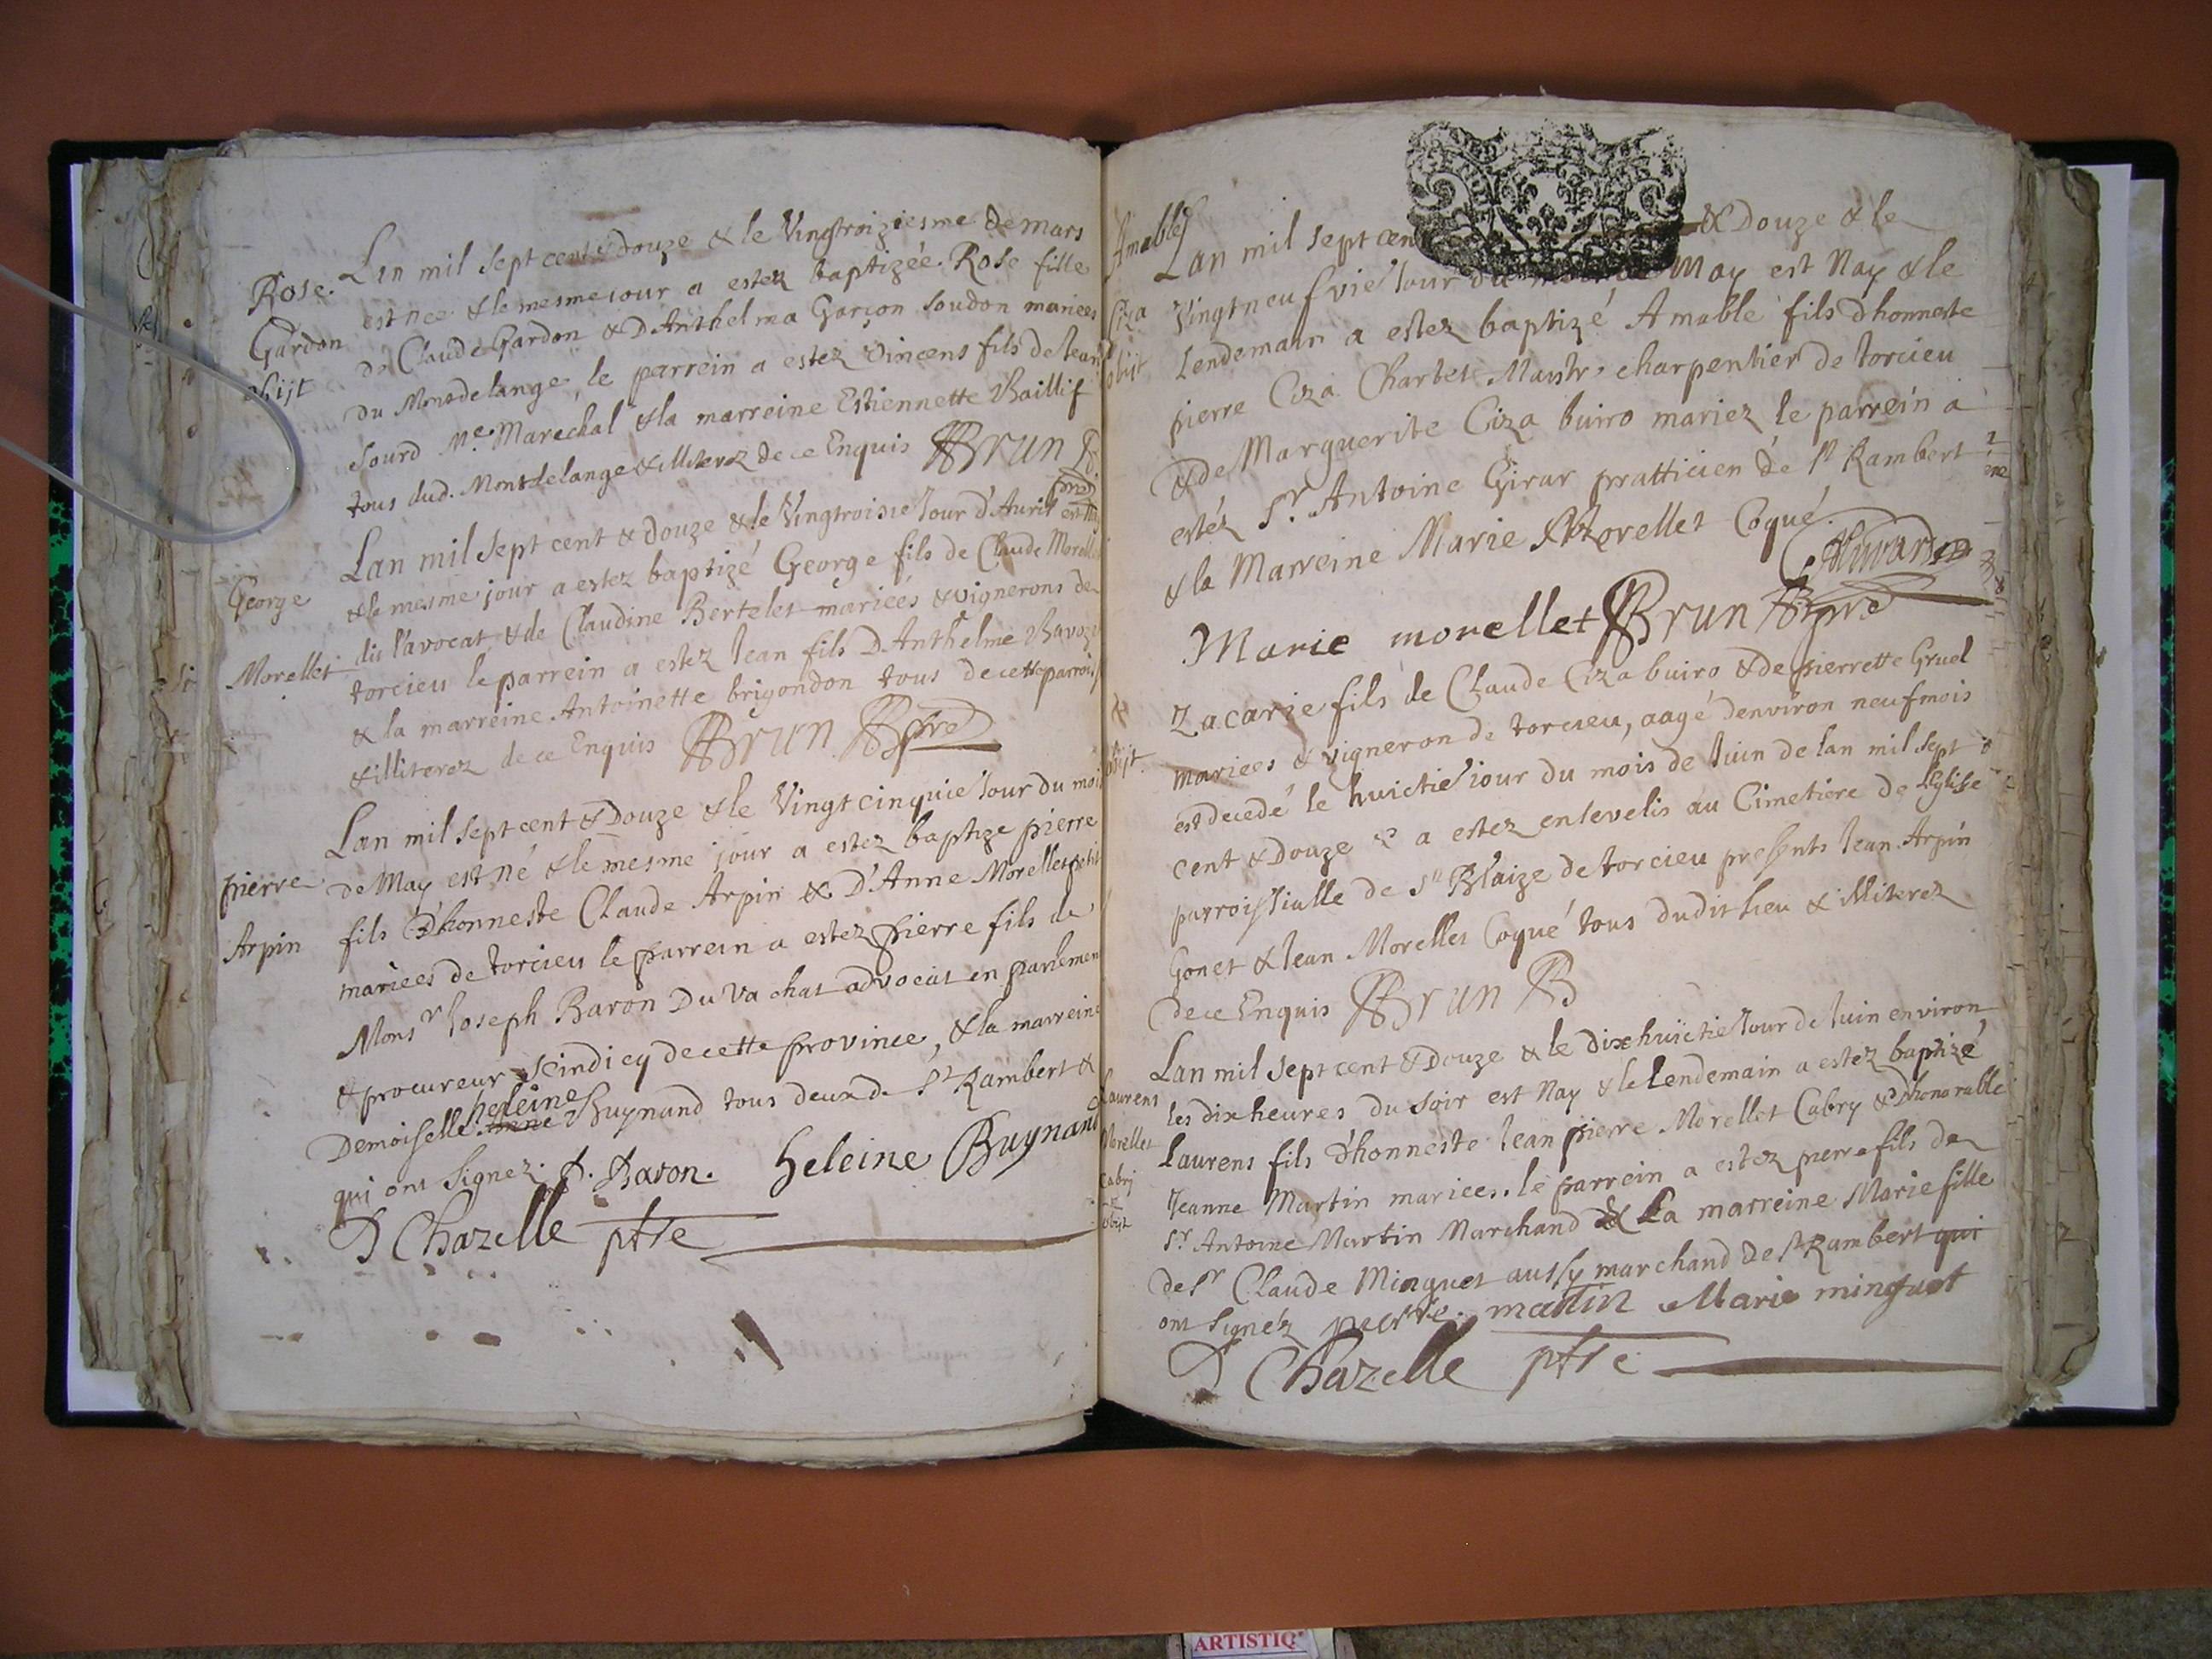 Lan mil sept cent & douze & le Vingtroiziesme de mars
Rose. est nee & le mesme iour a estez baptizée Rose fille
Gardon de Claude Gardon & D'Anthelma Garçon soudon mariees
obijt du Montdelange, le parrein a estez Vincens fils de Iean
sourd Me. Marechal & la marreine Estiennette Baillif
tous dud. Montdelange & illiterez de ce Enquis Brun
pre
Lan mil sept cent & douze & le Vingtroisie Iour d'Auril est
George & le mesme jour a estez baptizé George fils de Claude Morellet
Morellet dit l'avocat & de Claudine Bertelet mariées & vignerons de
torcieu le parrein a estez Iean fils D'Anthelme
& la marreine Antoinette brigondon tous de cette parroisse
& illiterez de ce Enquis Brun pre
Lan mil sept cent & Douze & le Vingt cinquie Iour du mois
pierre de May est né & le mesme jour a estez baptize pierre
Arpin fils d'honneste Claude Arpin & D'Anne Morellet petit
mariees de torcieu le parrein a estez pierre fils de
Monsr Ioseph Baron Du Vachat advocat en parlement
& procureur scindicq de cette province, & la marreine
Demoiselle Anne heleine Buynand tous deux de St Rambert &
qui ont signez. P. Baron. heleine Buynand
D Chazelle ptre
Amable
Lan mil sept cent & Douze & le
Ciza Vingt neufvie Iour du mois de May est Nay & le
obijt Lendemain a estez baptizé Amable fils d'honneste
pierre Ciza Charbet Maistre charpentier de torcieu
& de Marguerite Ciza buiro mariez le parrein a
estéz Sr. Antoine Girar pratticien de St Rambert
& la Marreine Marie Morellet Coqué.
Marie morellet Brun pre
Zacarie fils de Claude Ciza buiro & de pierrette Gruel
obijt. mariees & vigneron de torcieu, aagé d'environ neuf mois
est decedé le huictie iour du mois de Iuin de lan mil sept
cent & Douze & a estez ensevelis au Cimetiere de lEglise
parroissialle de St Blaize de torcieu presents Iean Arpin
Gonet & Iean Morellet Coqué tous dudit lieu & illiterez
de ce Enquis Brun
Lan mil sept cent & Douze & le dixhuictie Iour de Iuin environ
Laurens les dix heures du soir est Nay & le Lendemain a estez baptizé
Morellet Laurens fils d'honneste Iean pierre Morellet Cabry & d'honorable
Cabry Jeanne Martin mariees. le parrein a estez pierre fils de
obijt Sr. Antoine Martin Marchand & La marreine Marie fille
de Sr Claude Minguet aussy marchand de St Rambert qui
ont signéz pierre. martin Marie minguet
D Chazelle ptre
ARTISTIQ